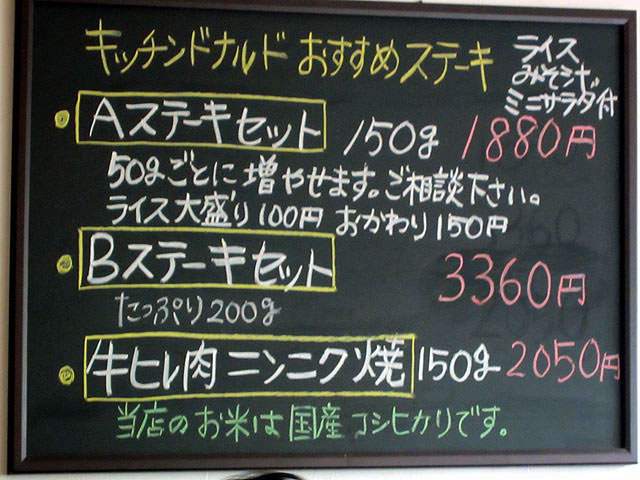 キッチンドナルド おすすめステーキ
ライス
みそしる
ミニサラダ付
Aステーキセット 150g 1880円
50gごとに増やせます。ご相談下さい。
ライス大盛り100円 おかわり150円
Bステーキセット 3360円
たっぷり200g
牛ヒレ肉ニンニク焼 150g 2050円
当店のお米は国産コシヒカリです。